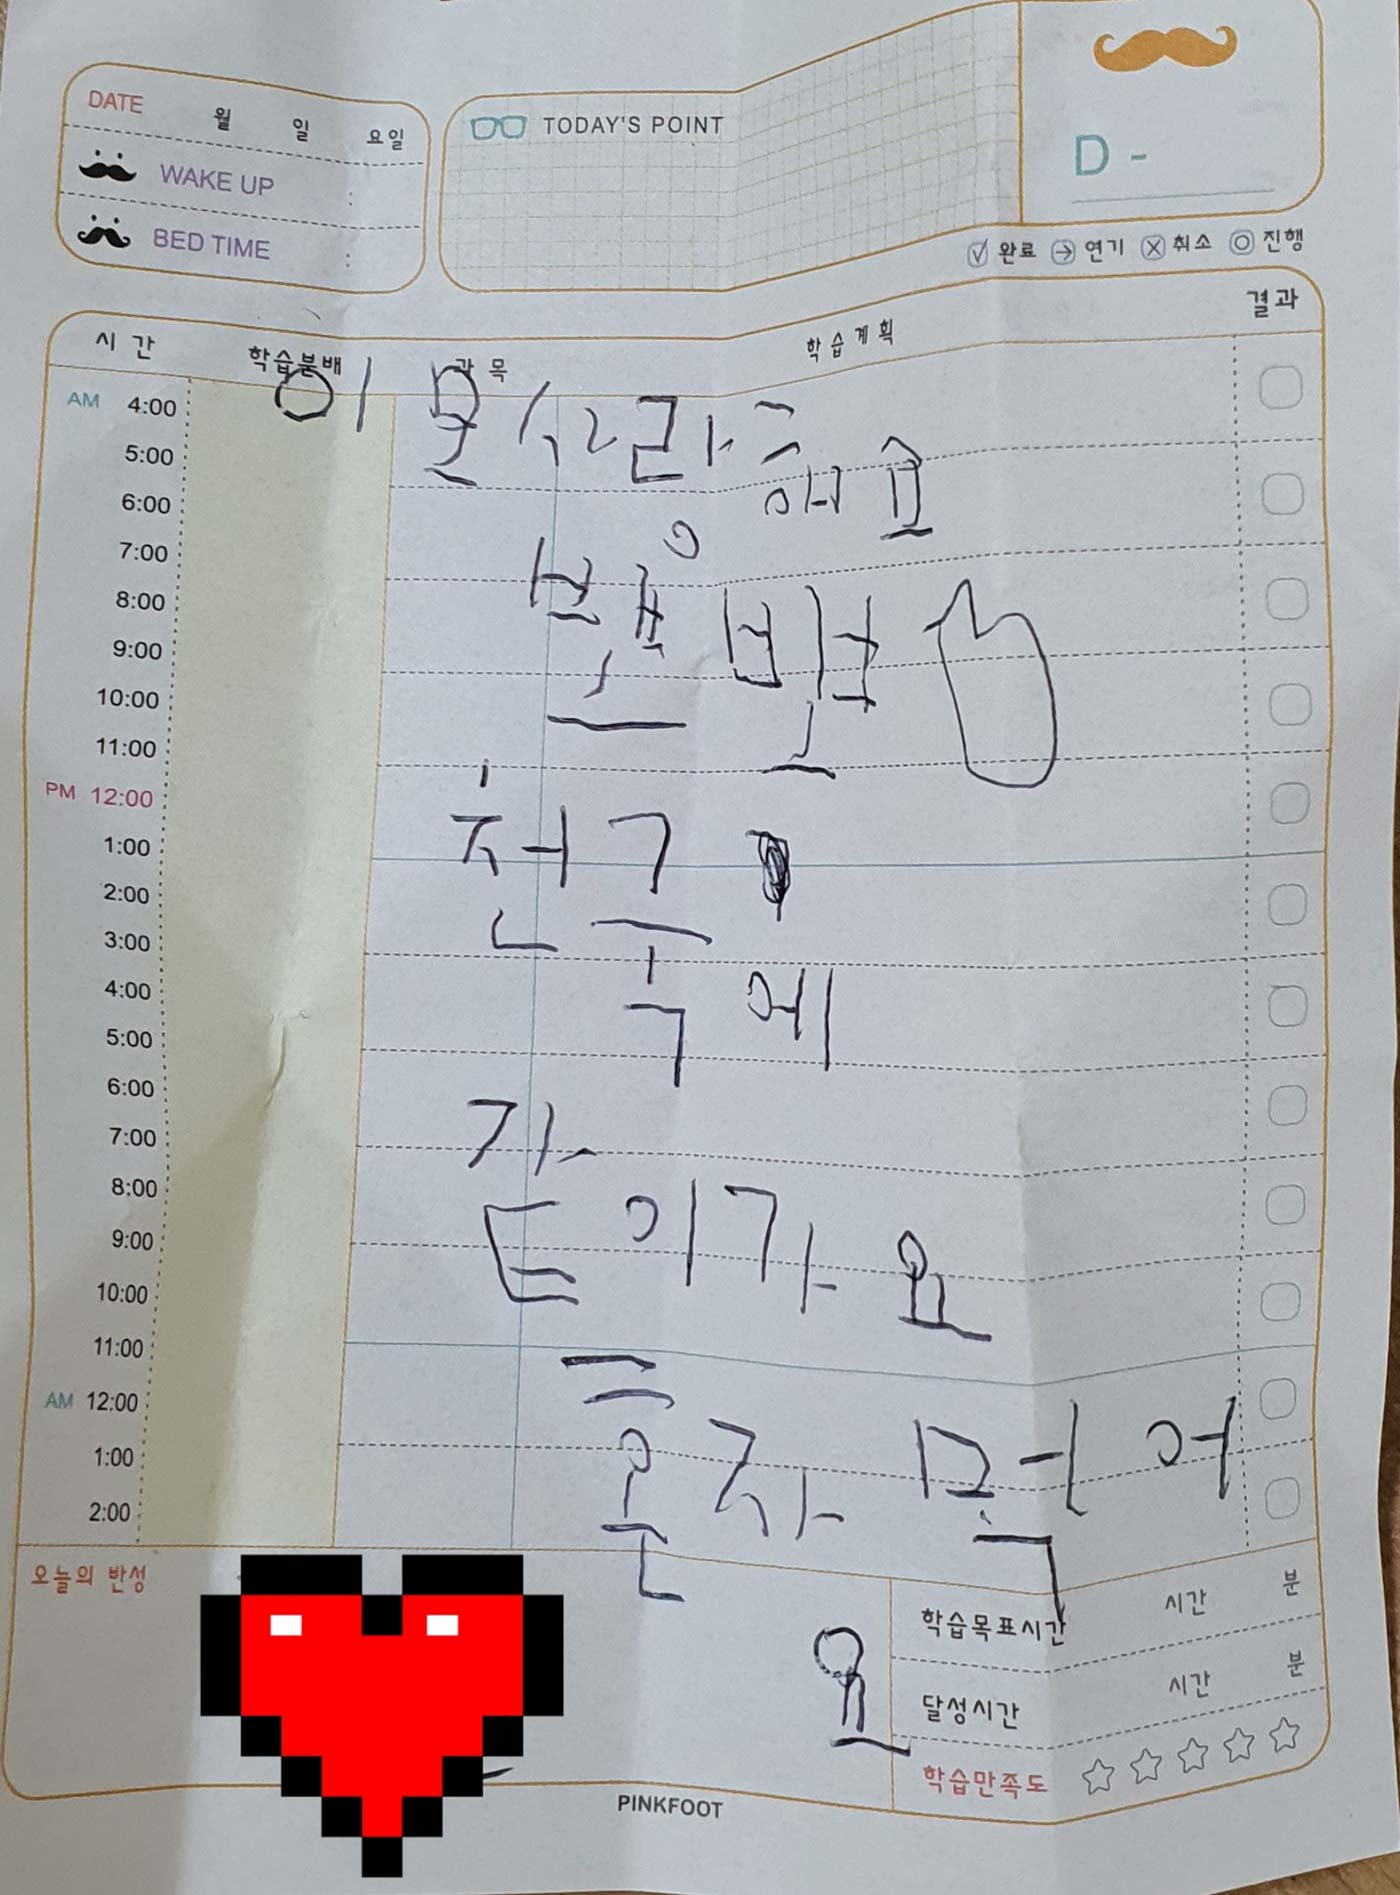 DATE 월 일 요일
WAKE UP :
BED TIME :
TODAY'S POINT
D -
완료 연기 취소 진행
시간 학습분배 과목 학습계획 결과
AM 4:00
5:00
6:00
7:00
8:00
9:00
10:00
11:00
PM 12:00
1:00
2:00
3:00
4:00
5:00
6:00
7:00
8:00
9:00
10:00
11:00
AM 12:00
1:00
2:00
이
해요
천국
국에
가
이가요
혼자 먹어
요
오늘의 반성
학습목표시간 시간 분
달성시간 시간 분
학습만족도
PINKFOOT